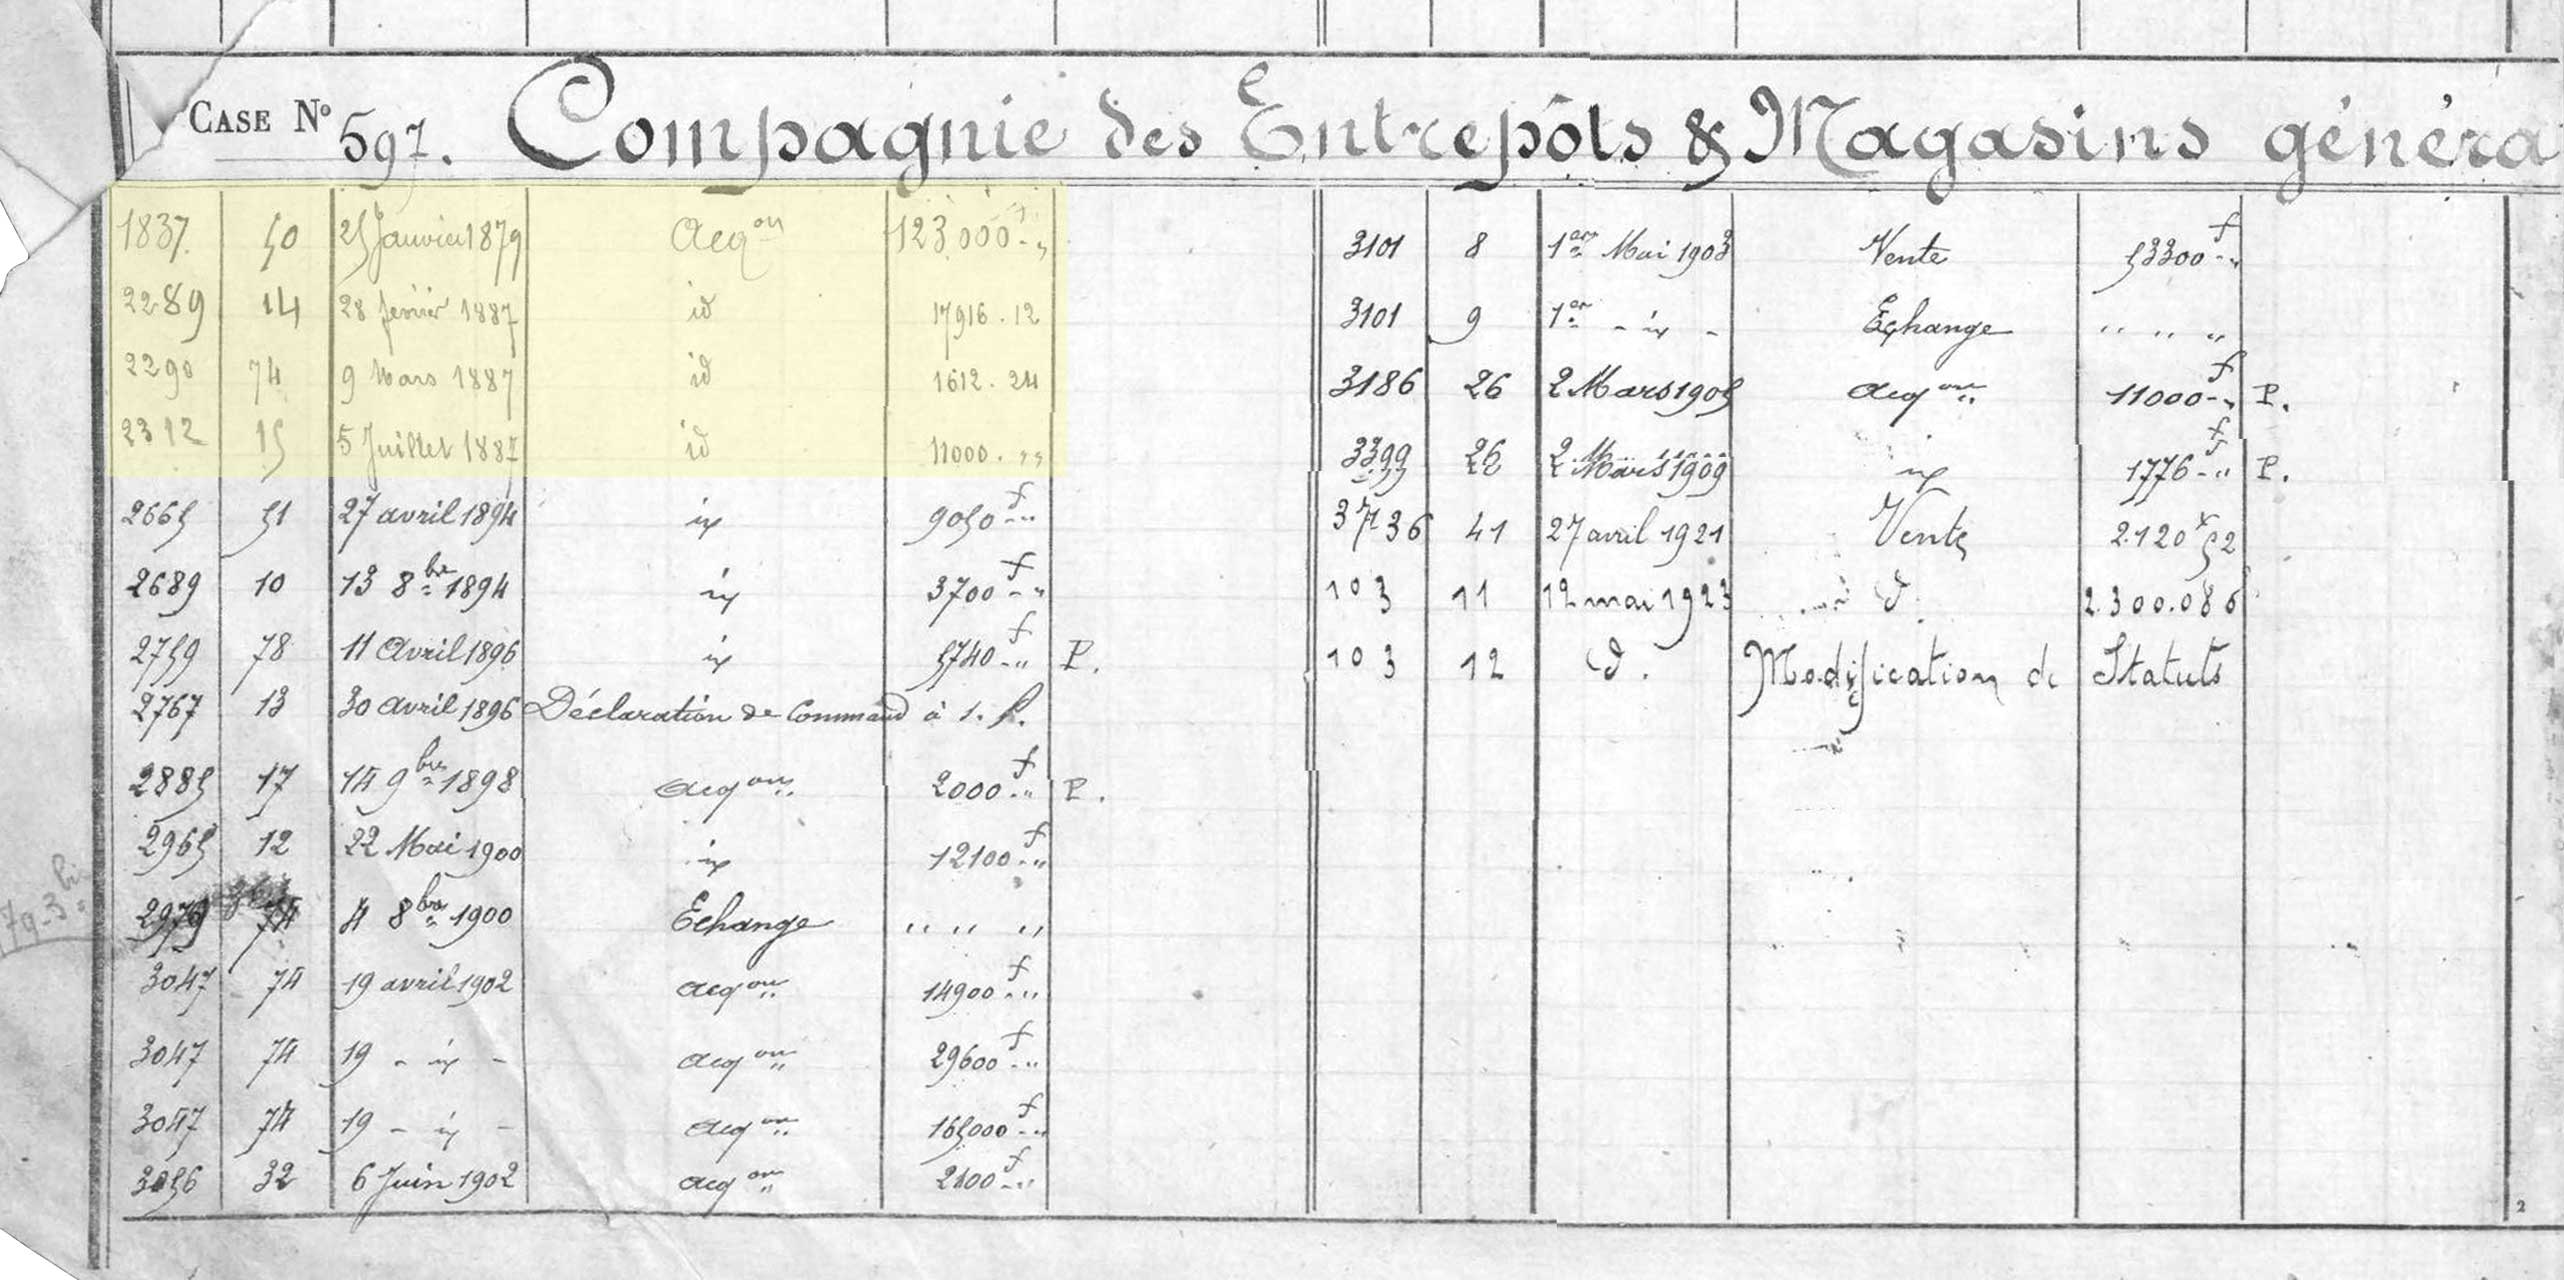 CASE Nº 597. Compagnie des Entrepôts & Magasins généra
1837. 50 25 Janvier 1879 Acqon 123.000f-"
2289 14 28 février 1887 id 17916.12
2290 74 9 Mars 1887 id 1612.24
2312 15 5 Juillet 1887 id 11000. "
2665 51 27 avril 1894 id 9050f-"
2689 10 13 8bre 1894 id 3700f-"
2759 78 11 Avril 1896 id 5740f-" P.
2767 13 30 avril 1896 Déclaration de Command à s. P.
2885 17 14 9bre 1898 acqon 2000f-" P.
2965 12 22 Mai 1900 id 12100f-"
2979 74 4 8bre 1900 Echange " " "
79-3bis
3047 74 19 avril 1902 acqon 14900f-"
3047 74 19 - id - acqon 29600f-"
3047 74 19 - id - acqon 165000f-"
3056 32 6 Juin 1902 acqon 2100f-"
3101 8 1er Mai 1903 Vente 53300f-"
3101 9 1er - id - Echange " " "
3186 26 2 Mars 1905 acqon 11000f-" P.
3399 26 2 Mars 1909 id 1776f-" P.
3736 41 27 avril 1921 Vente 2.120f52
103 11 12 mai 1923 d. 2.300.086
103 12 d. Modification de Statuts
2